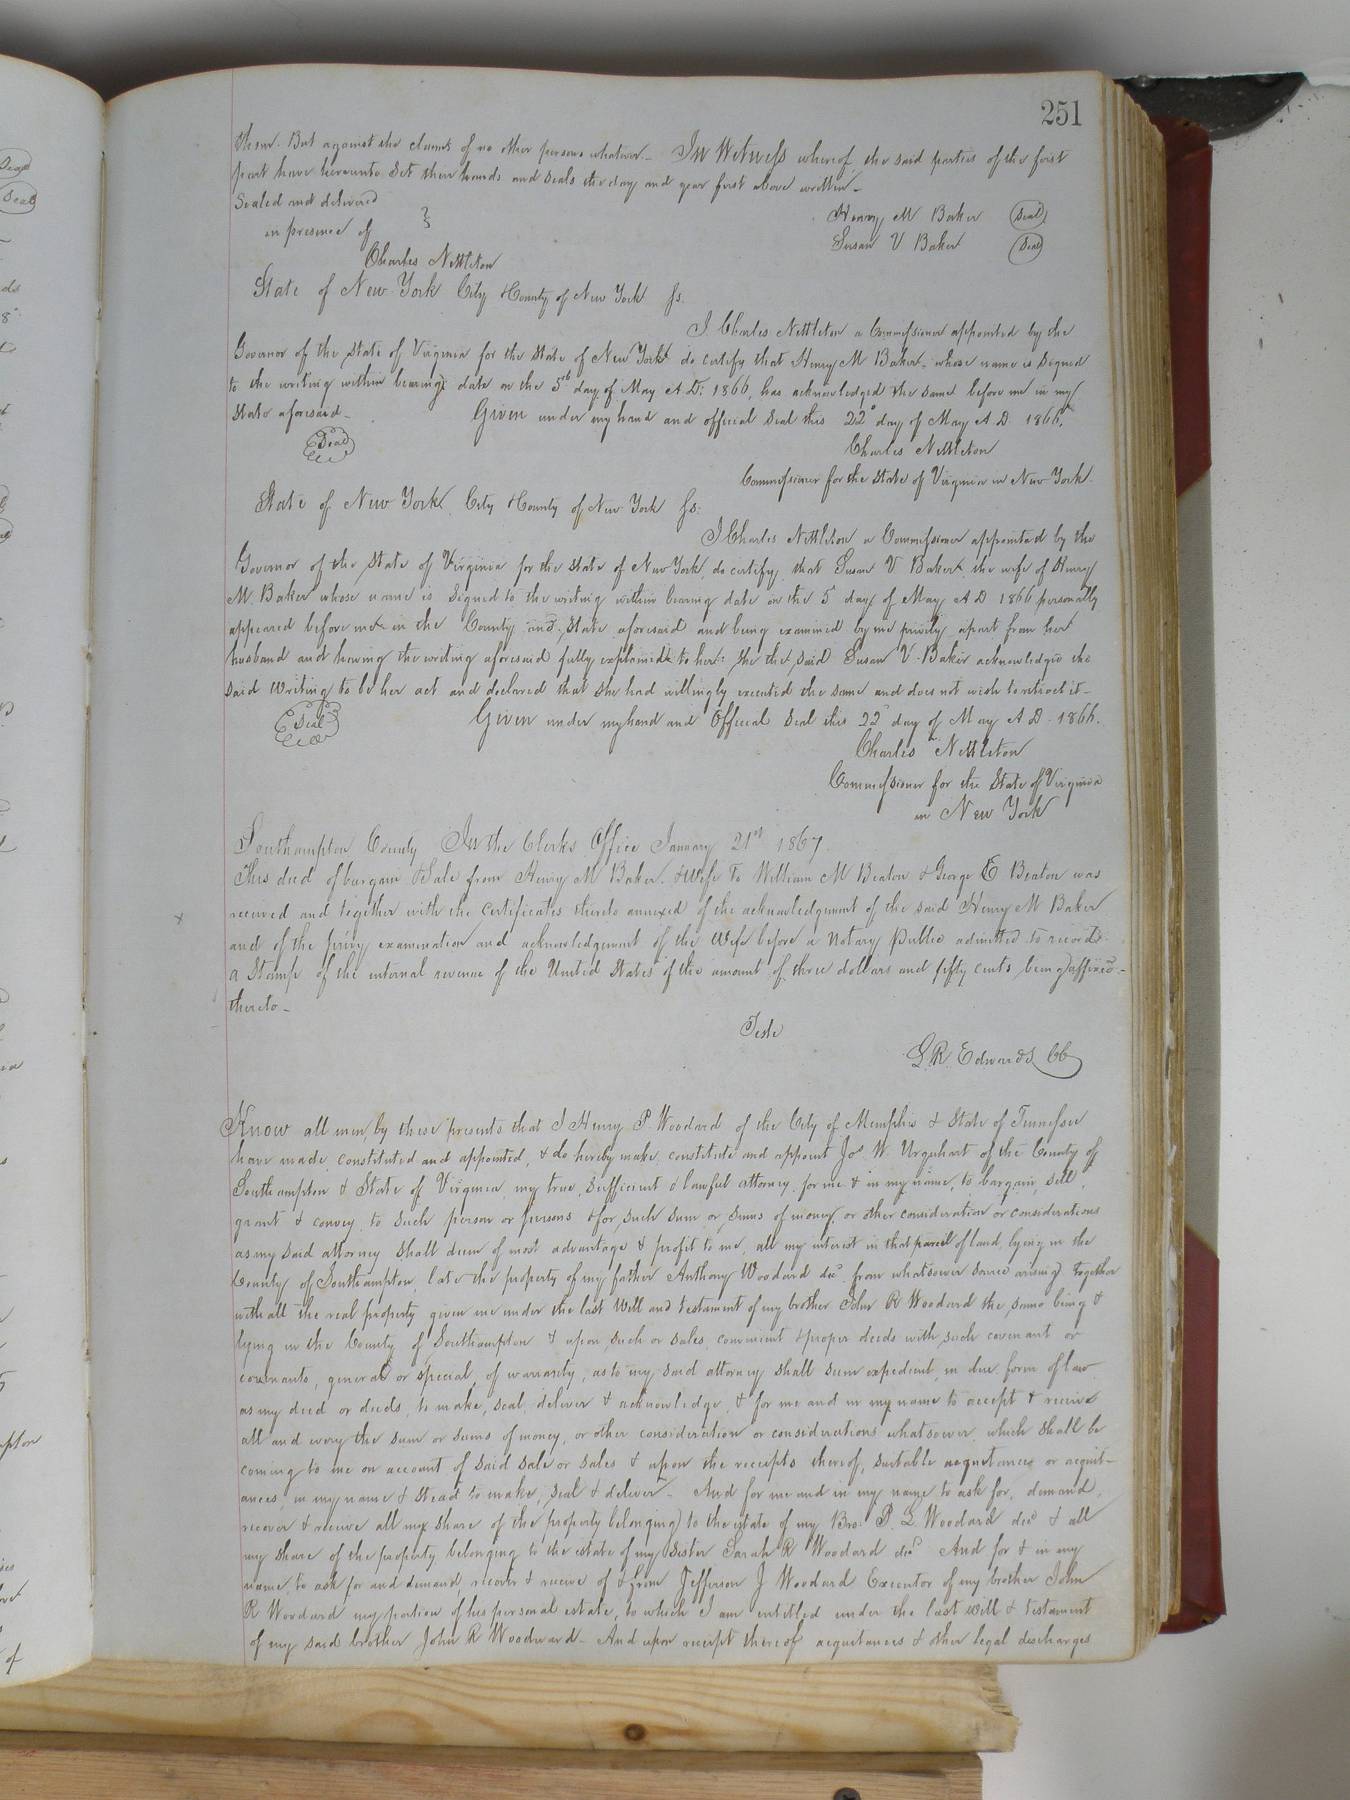 251
them. But against the claims of no other persons whatever_ In Witness whereof the said parties of the first
part have hereunto Set their hands and Seals the day and year first above written_
Sealed and delivered
in presence of
Henry M Baker (Seal)
Susan V Baker (Seal)
Charles Nettleton
State of New York City & County of New York Ss.
I Charles Nettleton a Commissioner appointed by the
Governor of the State of Virginia for the State of New York do certify that Henry M Baker whose name is Signed
to the writing within bearing date on the 5th day of May A.D. 1866, has acknowledged the same before me in my
State aforesaid_ Given under my hand and official Seal this 22d day of May A.D. 1866.
(Seal) Charles Nettleton
Commissioner for the State of Virginia in New York.
State of New York City & County of New York Ss.
I Charles Nettleton a Commissioner appointed by the
Governor of the State of Virginia for the State of New York, do certify that Susan V Baker the wife of Henry
M. Baker whose name is Signed to the writing within bearing date on the 5 day of May A.D 1866 personally
appeared before me in the County and State aforesaid and being examined by me privily apart from her
husband and having the writing aforesaid fully explained to her: She the said Susan V Baker acknowledged the
said Writing to be her act and declared that she had willingly executed the same and does not wish to retract it_
(Seal) Given under my hand and Official Seal this 22d day of May A.D. 1866.
Charles Nettleton
Commissioner for the State of Virginia
in New York
Southampton County In the Clerks Office January 21st 1867.
This deed of bargain & Sale from Henry M Baker & wife To William M Beaton & George E Beaton was
received and together with the Certificates thereto annexed of the acknowledgment of the said Henry M Baker
and of the privy examination and acknowledgement of the Wife before a Notary Public admitted to record.
a Stamp of the internal revenue of the United States of the amount of three dollars and fifty cents being affixed_
thereto_
Teste
L. R. Edwards CC
Know all men by these presents that I Henry P. Woodard of the City of Memphis & State of Tennessee
have made, constituted and appointed, & do hereby make constitute and appoint Jos W. Urquhart of the County of
Southampton & State of Virginia, my true, sufficient & lawful attorney for me & in my name, to bargain, sell,
grant & convey, to such person or persons & for such sum or sums of money, or other consideration or considerations
as my said attorney shall deem of most advantage & profit to me, all my interest in that parcel of land lying in the
County of Southampton, late the property of my father Anthony Woodard decd from whatsoever source arising together
with all the real property given me under the last Will and testament of my brother John R Woodard the same being &
lying in the County of Southampton & upon such or sales convenient & proper deeds with such covenant or
covenants, general or special, of warranty, as to my said attorney shall seem expedient, in due form of law
as my deed or deeds, to make, seal, deliver & acknowledge, & for me and in my name to accept & receive
all and every the sum or sums of money, or other consideration or considerations whatsoever, which shall be
coming to me on account of said sale or sales & upon the receipts thereof, suitable acquitances or acquit-
ances, in my name & stead to make, seal & deliver_ And for me and in my name to ask for, demand,
recover & receive all my share of the property belonging to the estate of my Bro. P. L. Woodard decd & all
my share of the property belonging to the estate of my sister Sarah R Woodard decd And for & in my
name, to ask for and demand, recover & receive of & from Jefferson J Woodard Executor of my brother John
R Woodard my portion of his personal estate, to which I am entitled under the last will & testament
of my said brother John R Woodward_ And upon receipt thereof acquitances & other legal discharges